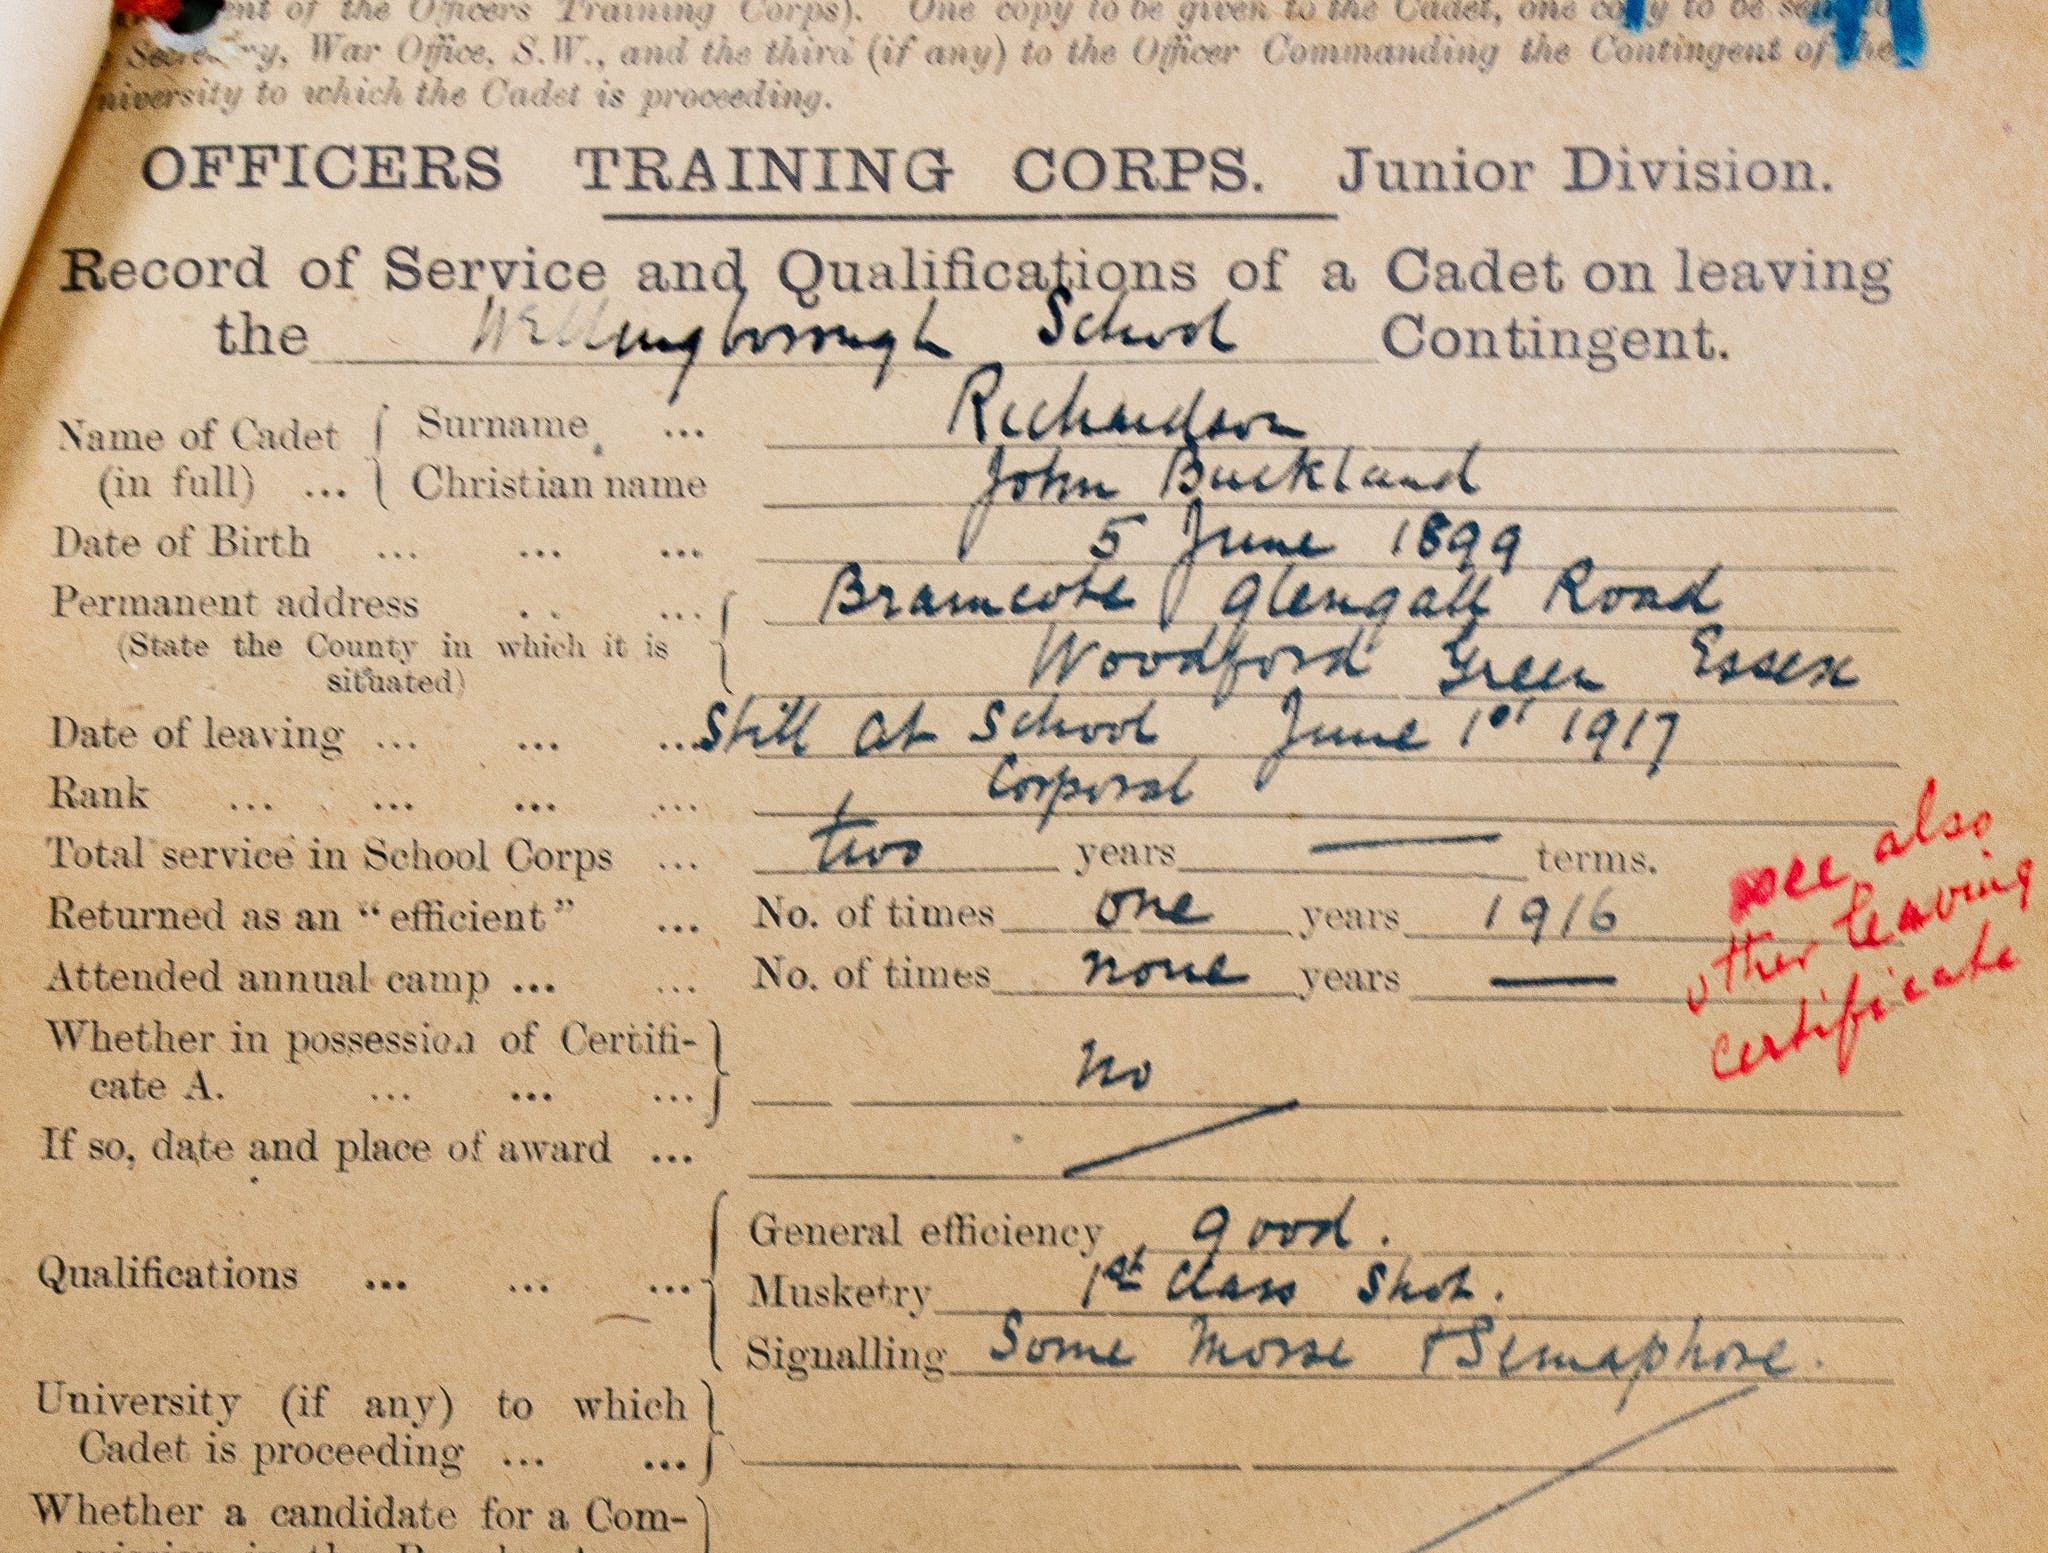 ent of the Officers Training Corps). One copy to be given to the Cadet, one copy to be sent to
Secretary, War Office, S.W., and the third (if any) to the Officer Commanding the Contingent of the
niversity to which the Cadet is proceeding.
OFFICERS TRAINING CORPS. Junior Division.
Record of Service and Qualifications of a Cadet on leaving
the Wellingborough School Contingent.
Name of Cadet { Surname ... Richardson
(in full) ... { Christian name John Buckland
Date of Birth ... ... ... 5 June 1899
Permanent address . . ... Bramcote Glengall Road
(State the County in which it is situated) Woodford Green Essex
Date of leaving ... ... ... Still at School June 1st 1917
Rank ... ... ... ... Corporal
Total service in School Corps ... two years — terms.
Returned as an "efficient" ... No. of times one years 1916
Attended annual camp ... ... No. of times none years —
see also
other leaving
certificate
Whether in possession of Certifi-
cate A. ... ... ... } No
If so, date and place of award ...
General efficiency good.
Qualifications ... ... ... { Musketry 1st Class Shot.
Signalling Some Morse + Semaphore.
University (if any) to which
Cadet is proceeding ... ... }
Whether a candidate for a Com-